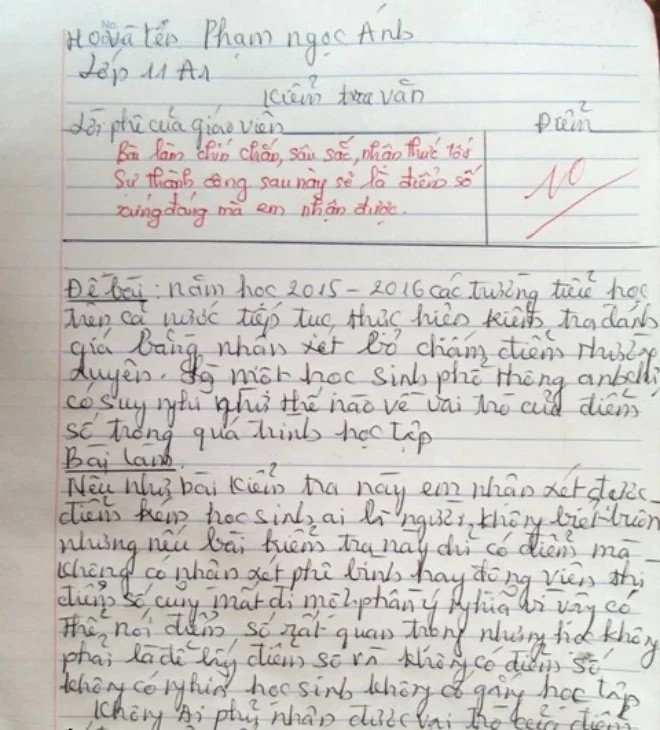 Họ và tên Phạm ngọc Ánh
Lớp 11 A1
Kiểm tra văn
Lời phê của giáo viên
Điểm
Bài làm chín chắn, sâu sắc, nhận thức tốt
Sự thành công sau này sẽ là điểm số
xứng đáng mà em nhận được.
10
Đề bài: năm học 2015 - 2016 các trường tiểu học
trên cả nước tiếp tục, thực hiện kiểm tra đánh
giá bằng nhận xét bỏ chấm điểm thường
xuyên. Là một học sinh phổ thông anh chị
có suy nghĩ như thế nào về vai trò của điểm
số trong quá trình học tập
Bài làm
Nếu như bài kiểm tra này em nhận xét được
điểm kém học sinh ai là người, không biết buồn
nhưng nếu bài kiểm tra này chỉ có điểm mà
không có nhận xét phê bình hay động viên thì
điểm số cũng mất đi một phần ý nghĩa vì vậy có
thể nói điểm số rất quan trọng nhưng học không
phải là để lấy điểm số và không có điểm số
không có nghĩa học sinh không cố gắng học tập
Không Ai phủ nhận được vai trò của điểm